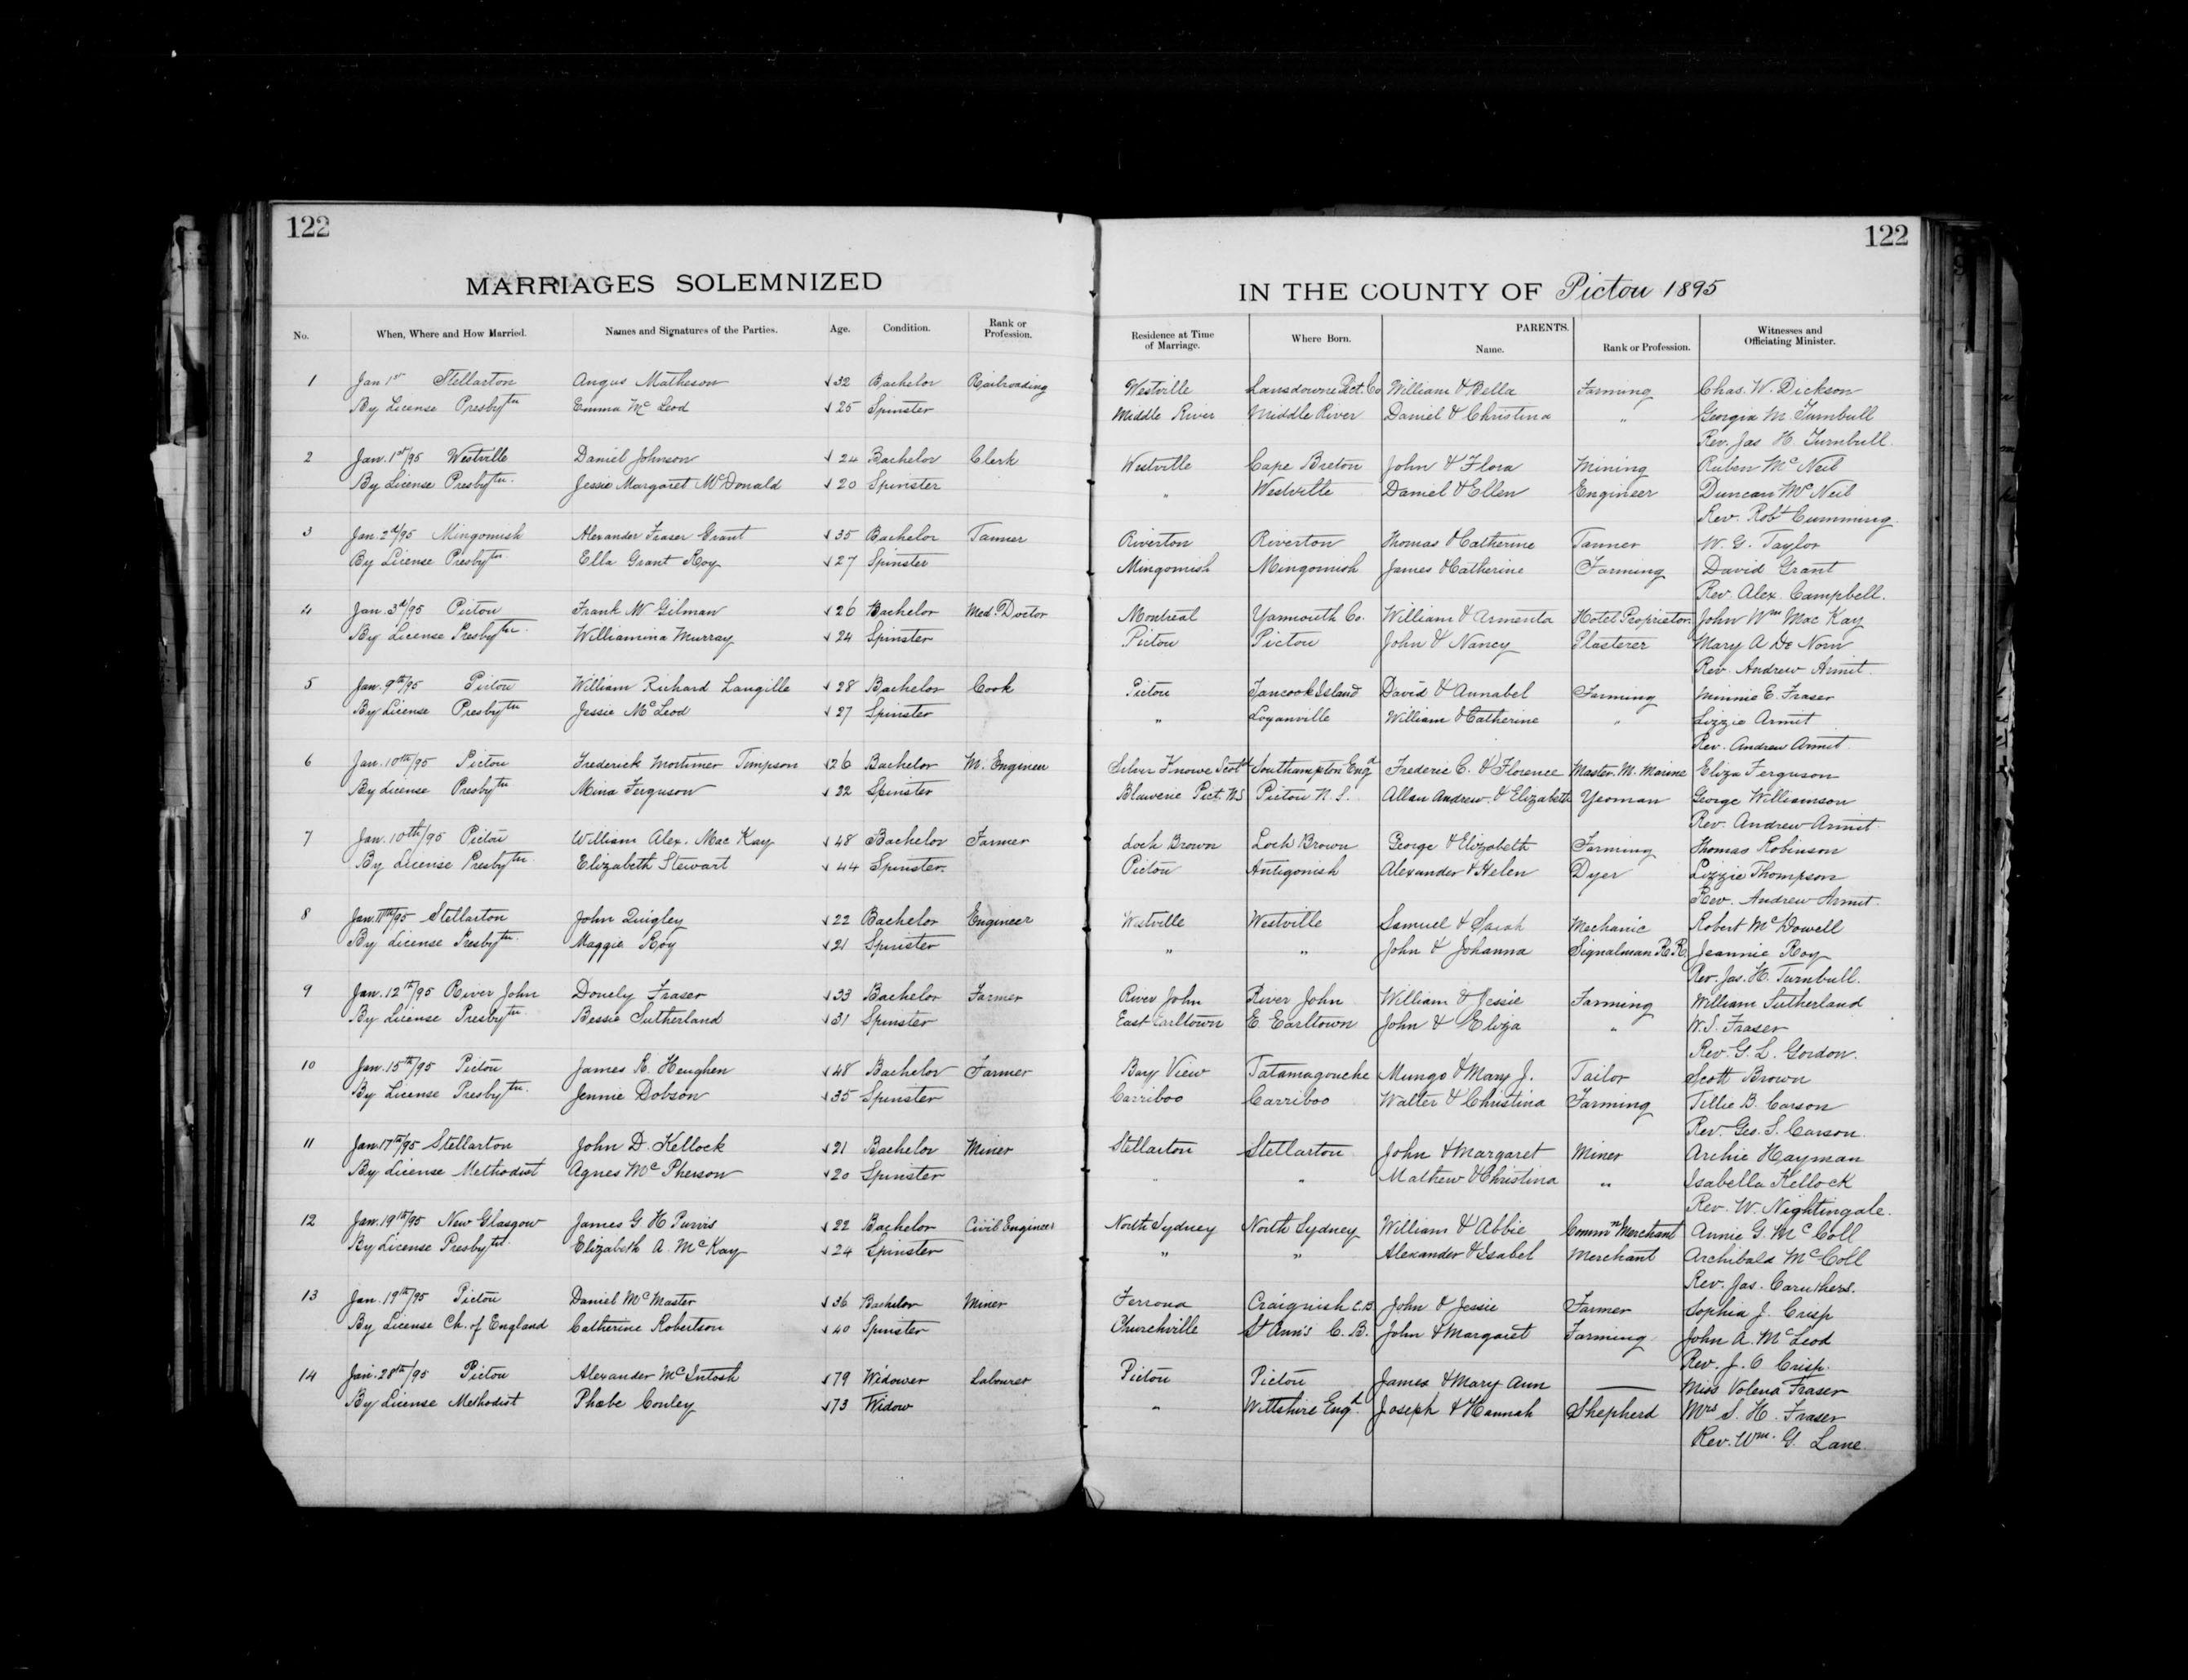 122
122
MARRIAGES SOLEMNIZED IN THE COUNTY OF Pictou 1895
No. When, Where and How Married. Names and Signatures of the Parties. Age. Condition. Rank or Profession. Residence at Time of Marriage. Where Born. PARENTS. Name. Rank or Profession. Witnesses and Officiating Minister.
1 Jan 1st Stellarton Angus Matheson 32 Bachelor Railroading Westville Lansdowne Pict. Co William & Bella Farming Chas. W. Dickson
By License Presbytn Emma Mc Leod 25 Spinster Middle River Middle River Daniel & Christina " Georgia M. Turnbull
Rev. Jas H. Turnbull.
2 Jan. 1st/95 Westville Daniel Johnson 24 Bachelor Clerk Westville Cape Breton John & Flora Mining Ruben Mc Neil
By License Presbytn. Jessie Margaret McDonald 20 Spinster " Westville Daniel & Ellen Engineer Duncan Mc Neil
Rev. Robt Cumming.
3 Jan. 2d/95 Mingomish Alexander Fraser Grant 35 Bachelor Tanner Riverton Riverton Thomas & Catherine Tanner W. G. Taylor
By License Presbytn. Ella Grant Roy 27 Spinster Mingomish Mingomish James & Catherine Farming David Grant
Rev. Alex. Campbell.
4 Jan. 3d/95 Pictou Frank W Gilman 26 Bachelor Med. Doctor Montreal Yarmouth Co. William & Armenta Hotel Proprietor John Wm Mac Kay
By License Presbytn. Williamina Murray 24 Spinster Pictou Pictou John & Nancy Plasterer Mary A De Norn
Rev. Andrew Armit.
5 Jan. 9th/95 Pictou William Richard Langille 28 Bachelor Cook Pictou Tancook Island David & Annabel Farming Minnie E. Fraser
By License Presbytn Jessie McLeod 27 Spinster " Loganville William & Catherine " Lizzie Armit
Rev. Andrew Armit.
6 Jan. 10th/95 Pictou Frederick Mortimer Timpson 26 Bachelor M. Engineer Silver Knowe Scotd Southampton Engd Frederic C. & Florence Master M. Marine Eliza Ferguson
By License Presbytn Mina Ferguson 22 Spinster Pict. N.S Pictou N. S. Allan Andrew. & Elizabeth Yeoman George Williamson
Rev. Andrew Armit.
7 Jan. 10th/95 Pictou William Alex. Mac Kay 48 Bachelor Farmer Loch Brown Loch Brown George & Elizabeth Farming Thomas Robinson
By License Presbytn. Elizabeth Stewart 44 Spinster. Pictou Antigonish Alexander & Helen Dyer Lizzie Thompson
Rev. Andrew Armit.
8 Jan. 11th/95 Stellarton John Quigley 22 Bachelor Engineer Westville Westville Samuel & Sarah Mechanic Robert McDowell
By License Presbytn. Maggie Roy 21 Spinster " " John & Johanna Signalman R.R. Jeannie Roy
Rev. Jas. H. Turnbull.
9 Jan. 12th/95 River John Donely Fraser 33 Bachelor Farmer River John River John William & Jessie Farming William Sutherland
By License Presbytn. Bessie Sutherland 31 Spinster East Earltown E. Earltown John & Eliza " W. S. Fraser
Rev. G. L. Gordon.
10 Jan. 15th/95 Pictou James R. Heughen 48 Bachelor Farmer Bay View Tatamagouche Mungo & Mary J. Tailor Scott Brown
By License Presbytn. Jennie Dobson 35 Spinster Carriboo Carriboo Walter & Christina Farming Tillie B. Carson
Rev. Geo. S. Carson.
11 Jan. 17th/95 Stellarton John D. Kellock 21 Bachelor Miner Stellarton Stellarton John & Margaret Miner Archie Hayman
By License Methodist Agnes McPherson 20 Spinster " " Mathew & Christina " Isabella Kellock
Rev. W. Nightingale.
12 Jan. 19th/95 New Glasgow James G H Purvis 22 Bachelor Civil Engineer North Sydney North Sydney William & Abbie Commn Merchant Annie G. McColl
By License Presbytn. Elizabeth A. McKay 24 Spinster " " Alexander & Isabel Merchant Archibald McColl
Rev. Jas. Caruthers.
13 Jan. 19th/95 Pictou Daniel McMaster 36 Bachelor Miner Ferrona Craignish C.B. John & Jessie Farmer Sophia J. Crisp
By License Ch. of England Catherine Robertson 40 Spinster Churchville St Ann's C. B. John & Margaret Farming John A. McLeod
Rev. J. O Crisp.
14 Jan. 28th/95 Pictou Alexander McIntosh 79 Widower Labourer Pictou Pictou James & Mary Ann — Miss Volena Fraser
By License Methodist Phœbe Conley 73 Widow " Wiltshire Engd. Joseph & Hannah Shepherd Mrs S. H. Fraser
Rev. Wm. G. Lane.